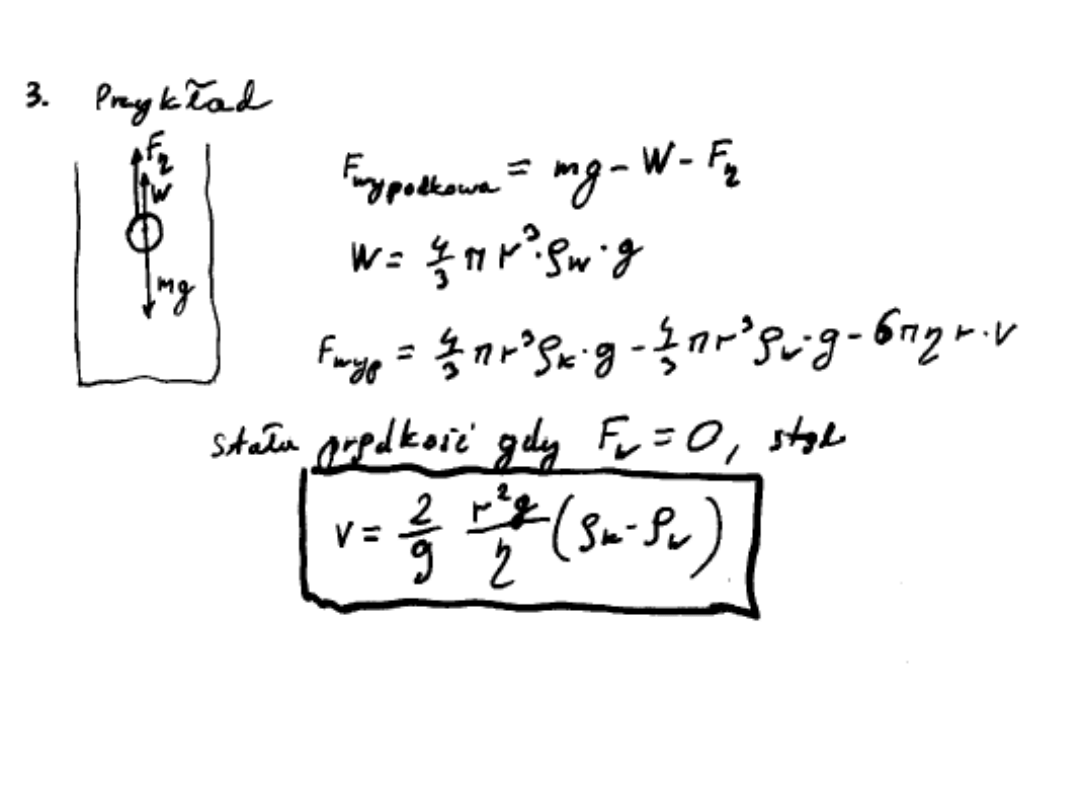 3. Przykład
F_η
W
mg
F_wypadkowa = mg - W - F_η
W = 4/3 π r³ · ρ_w · g
F_wyp = 4/3 π r³ ρ_k · g - 4/3 π r³ ρ_w · g - 6 π η r · v
stała prędkość gdy F_w = 0, stąd
v = 2/9 r²g/η (ρ_k - ρ_w)